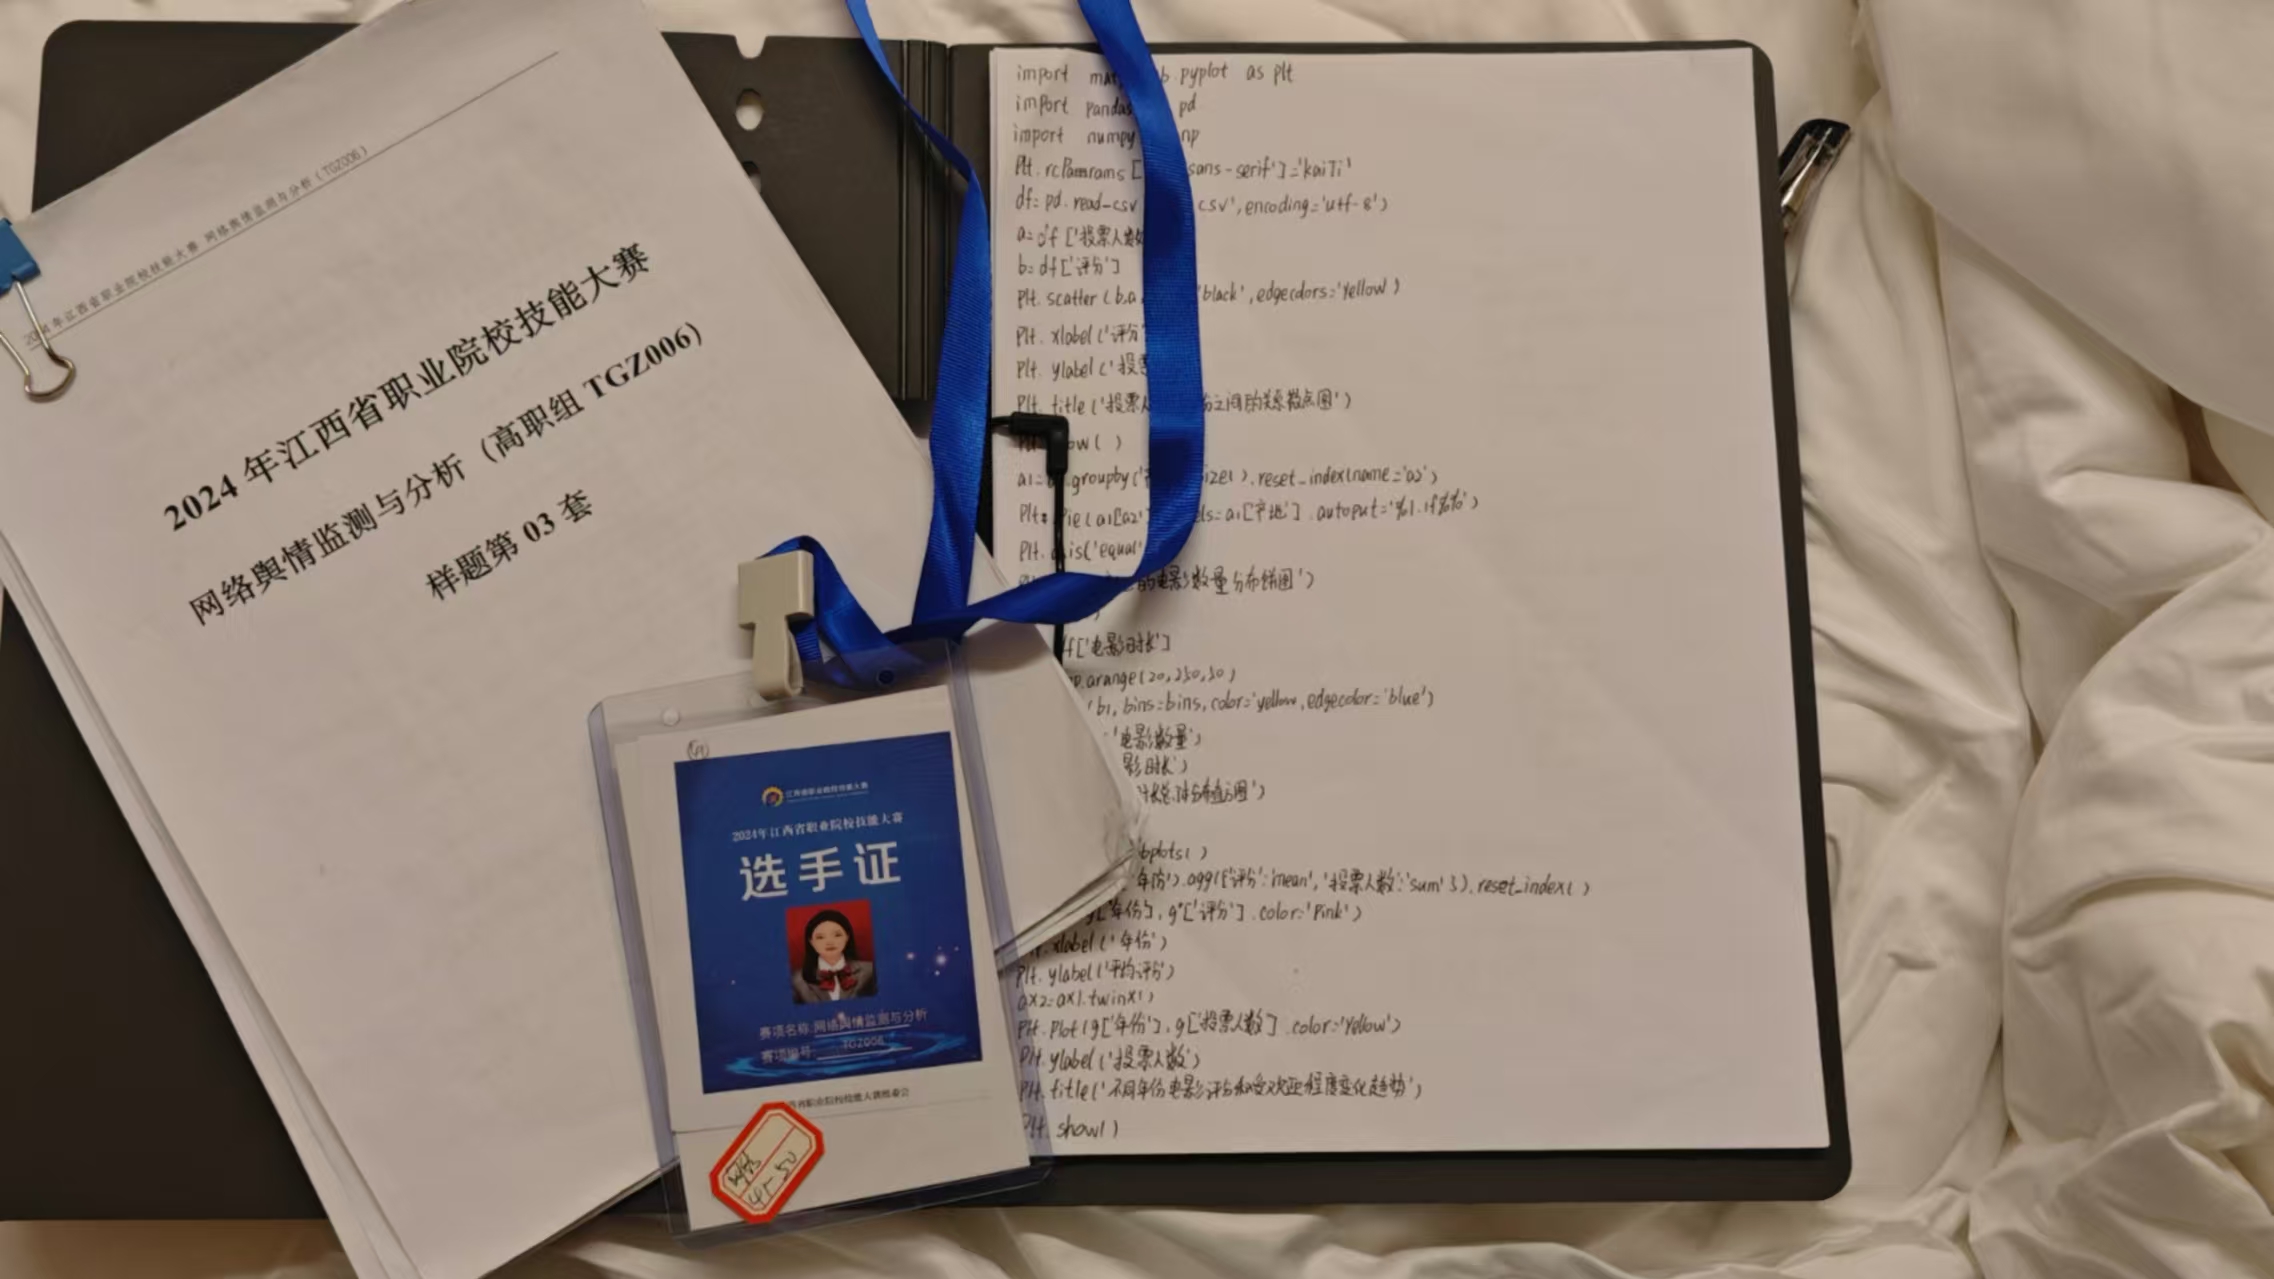 2024年江西省职业院校技能大赛 网络舆情监测与分析（TGZ006）
2024 年江西省职业院校技能大赛
网络舆情监测与分析（高职组 TGZ006）
样题第 03 套
江西省职业院校技能大赛
2024年江西省职业院校技能大赛
选手证
赛项名称:网络舆情监测与分析
赛项编号: TGZ006
西省职业院校技能大赛组委会
45 50
import mat b.pyplot as plt
import pandas pd
import numpy np
Plt. rcParams [ sans-serif']='kaiTi'
df= pd. read-csv csv', encoding='utf-8')
a= df ['投票人数
b= df['评分']
Plt. scatter (b,a, 'black', edgecolors='Yellow)
Plt. xlabel('评分'
Plt. ylabel ('投票
Plt. title ('投票人 分之间的关系散点图')
ow( )
a1= .groupby(' size( ). reset_index(name='a2')
Plt. Pie(a1[a2' els=a1['产地'] . autoput='%1.1f%%')
Plt. axis('equal'
的电影数量分布饼图')
)
f['电影时长']
np.arange(20,250,50)
(b1, bins=bins, color='yellow, edgecolor='blue')
'电影数量')
影时长')
时长总体分布直方图')
bplots( )
'年份').agg({'评分':'mean','投票人数':'sum'}).reset_index( )
g['年份'], g['评分'] .color='Pink')
t. xlabel('年份')
Plt. ylabel('平均评分')
ax2=ax1.twinx( )
Plt. Plot(g['年份'], g['投票人数'] .color='Yellow')
Plt. ylabel('投票人数')
Plt. title('不同年份电影评分和受欢迎程度变化趋势')
Plt. show( )